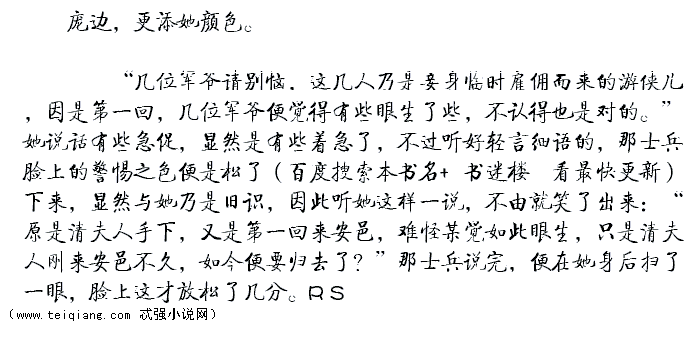 庞边，更添她颜色。
“几位军爷请别恼．这几人乃是妾身临时雇佣而来的游侠儿
，因是第一回，几位军爷便觉得有些眼生了些，不认得也是对的。”
她说话有些急促，显然是有些着急了，不过听好轻言细语的，那士兵
脸上的警惕之色便是松了（百度搜索本书名+ 书迷楼 看最快更新）
下来，显然与她乃是旧识，因此听她这样一说，不由就笑了出来：“
原是清夫人手下，又是第一回来安邑，难怪某觉如此眼生，只是清夫
人刚来安邑不久，如今便要归去了？”那士兵说完，便在她身后扫了
一眼，脸上这才放松了几分。RS
（www.teiqiang.com 忒强小说网）